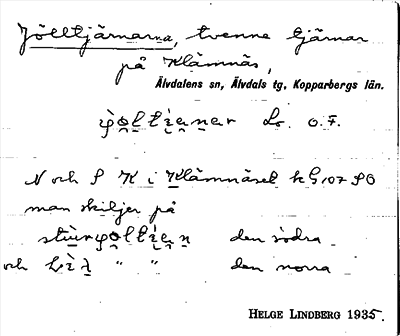 Jölltjärnarna, tvenne tjärnar
på Klämnäs,
Älvdalens sn, Älvdals tg, Kopparbergs län.
N och S K i Klämnäset k G 107 SO
man skiljer på
den södra
och " " den norra
HELGE LINDBERG 1935.